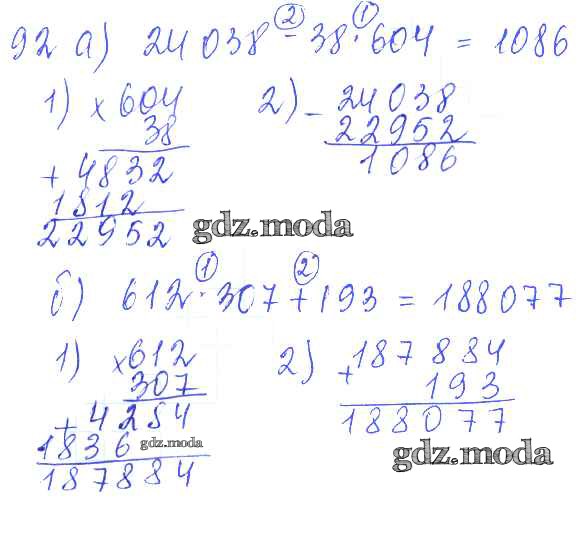 92 а) 24 038 - 38 · 604 = 1086
② ①
1) × 604
38
+ 4832
1812
22952
2) - 24038
22952
1086
gdz.moda
б) 612 · 307 + 193 = 188077
① ②
1) × 612
307
+ 4284
1836
187884
gdz.moda
2) + 187884
193
188077
gdz.moda